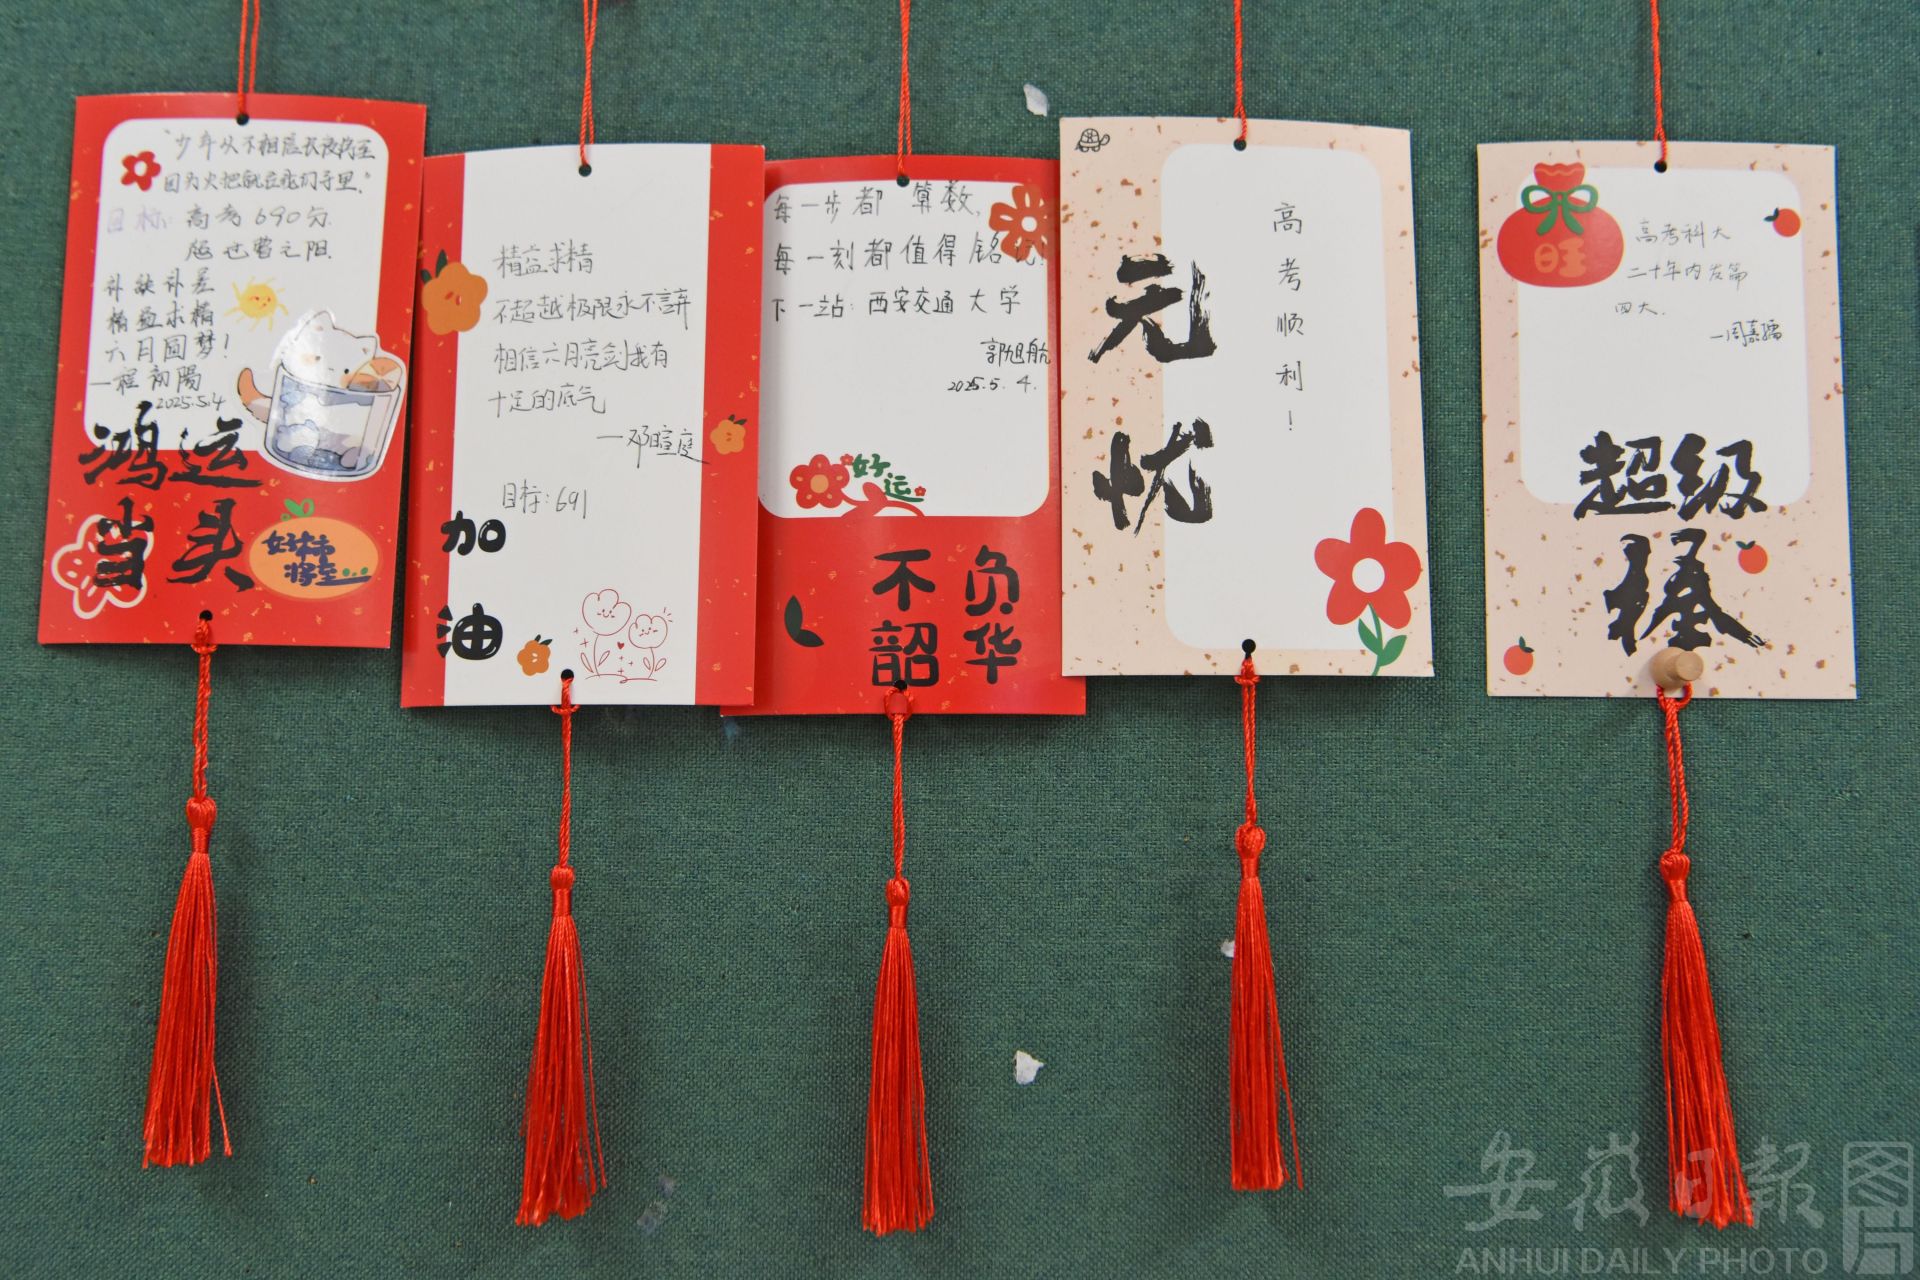 "少年从不相信长夜将至
因为火把就在我们手里。"
目标：高考690分
补缺补差
精益求精
六月圆梦！
—程初陽
2025.5.4
鸿运
当头
好柿
将至
精益求精
不超越极限永不言弃
相信六月亮剑我有
十足的底气
—邓暄庭
目标：691
加
油
每一步都算数，
每一刻都值得铭记！
下一站：西安交通大学
郭旭航
2025.5.4.
好
运
不负
韶华
高考顺利！
无
忧
旺
高考科大
二十年内发篇
四大.
超级
棒
安徽日報
图片
ANHUI DAILY PHOTO